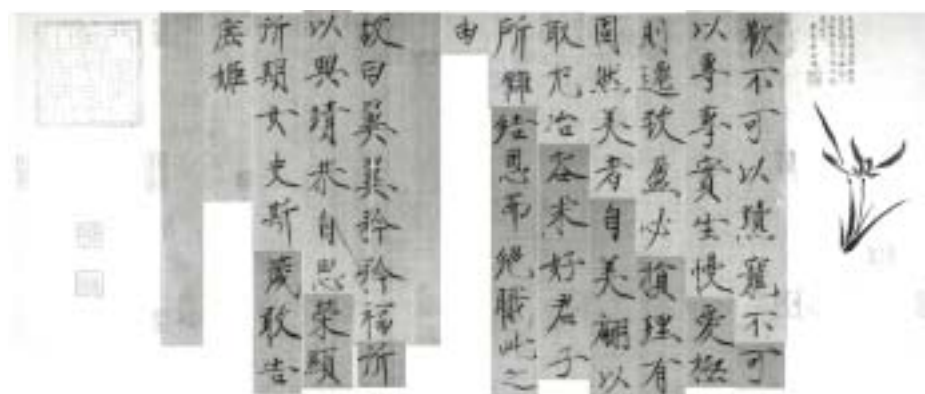 歡不可以瀆寵不可
以專專實生慢愛極
則遷致盈必損理有
固然美者自美翩以
取尤冶容求好君子
所讎結恩而絕職此之
由
故曰翼翼矜矜福所
以興靖恭自思榮顯
所期女史斯箴敢告
庶姬